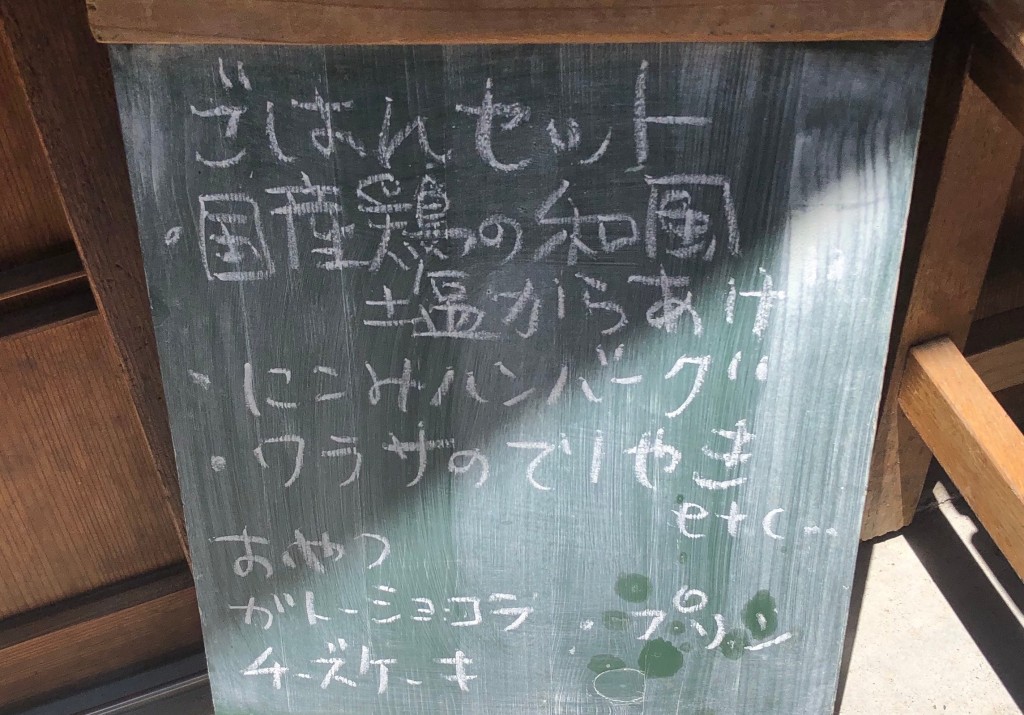 ごはんセット
・国産鶏の和風
塩からあげ
・にこみハンバーグ
・ワラサのてりやき
etc...
おやつ
ガトーショコラ ・プリン
チーズケーキ